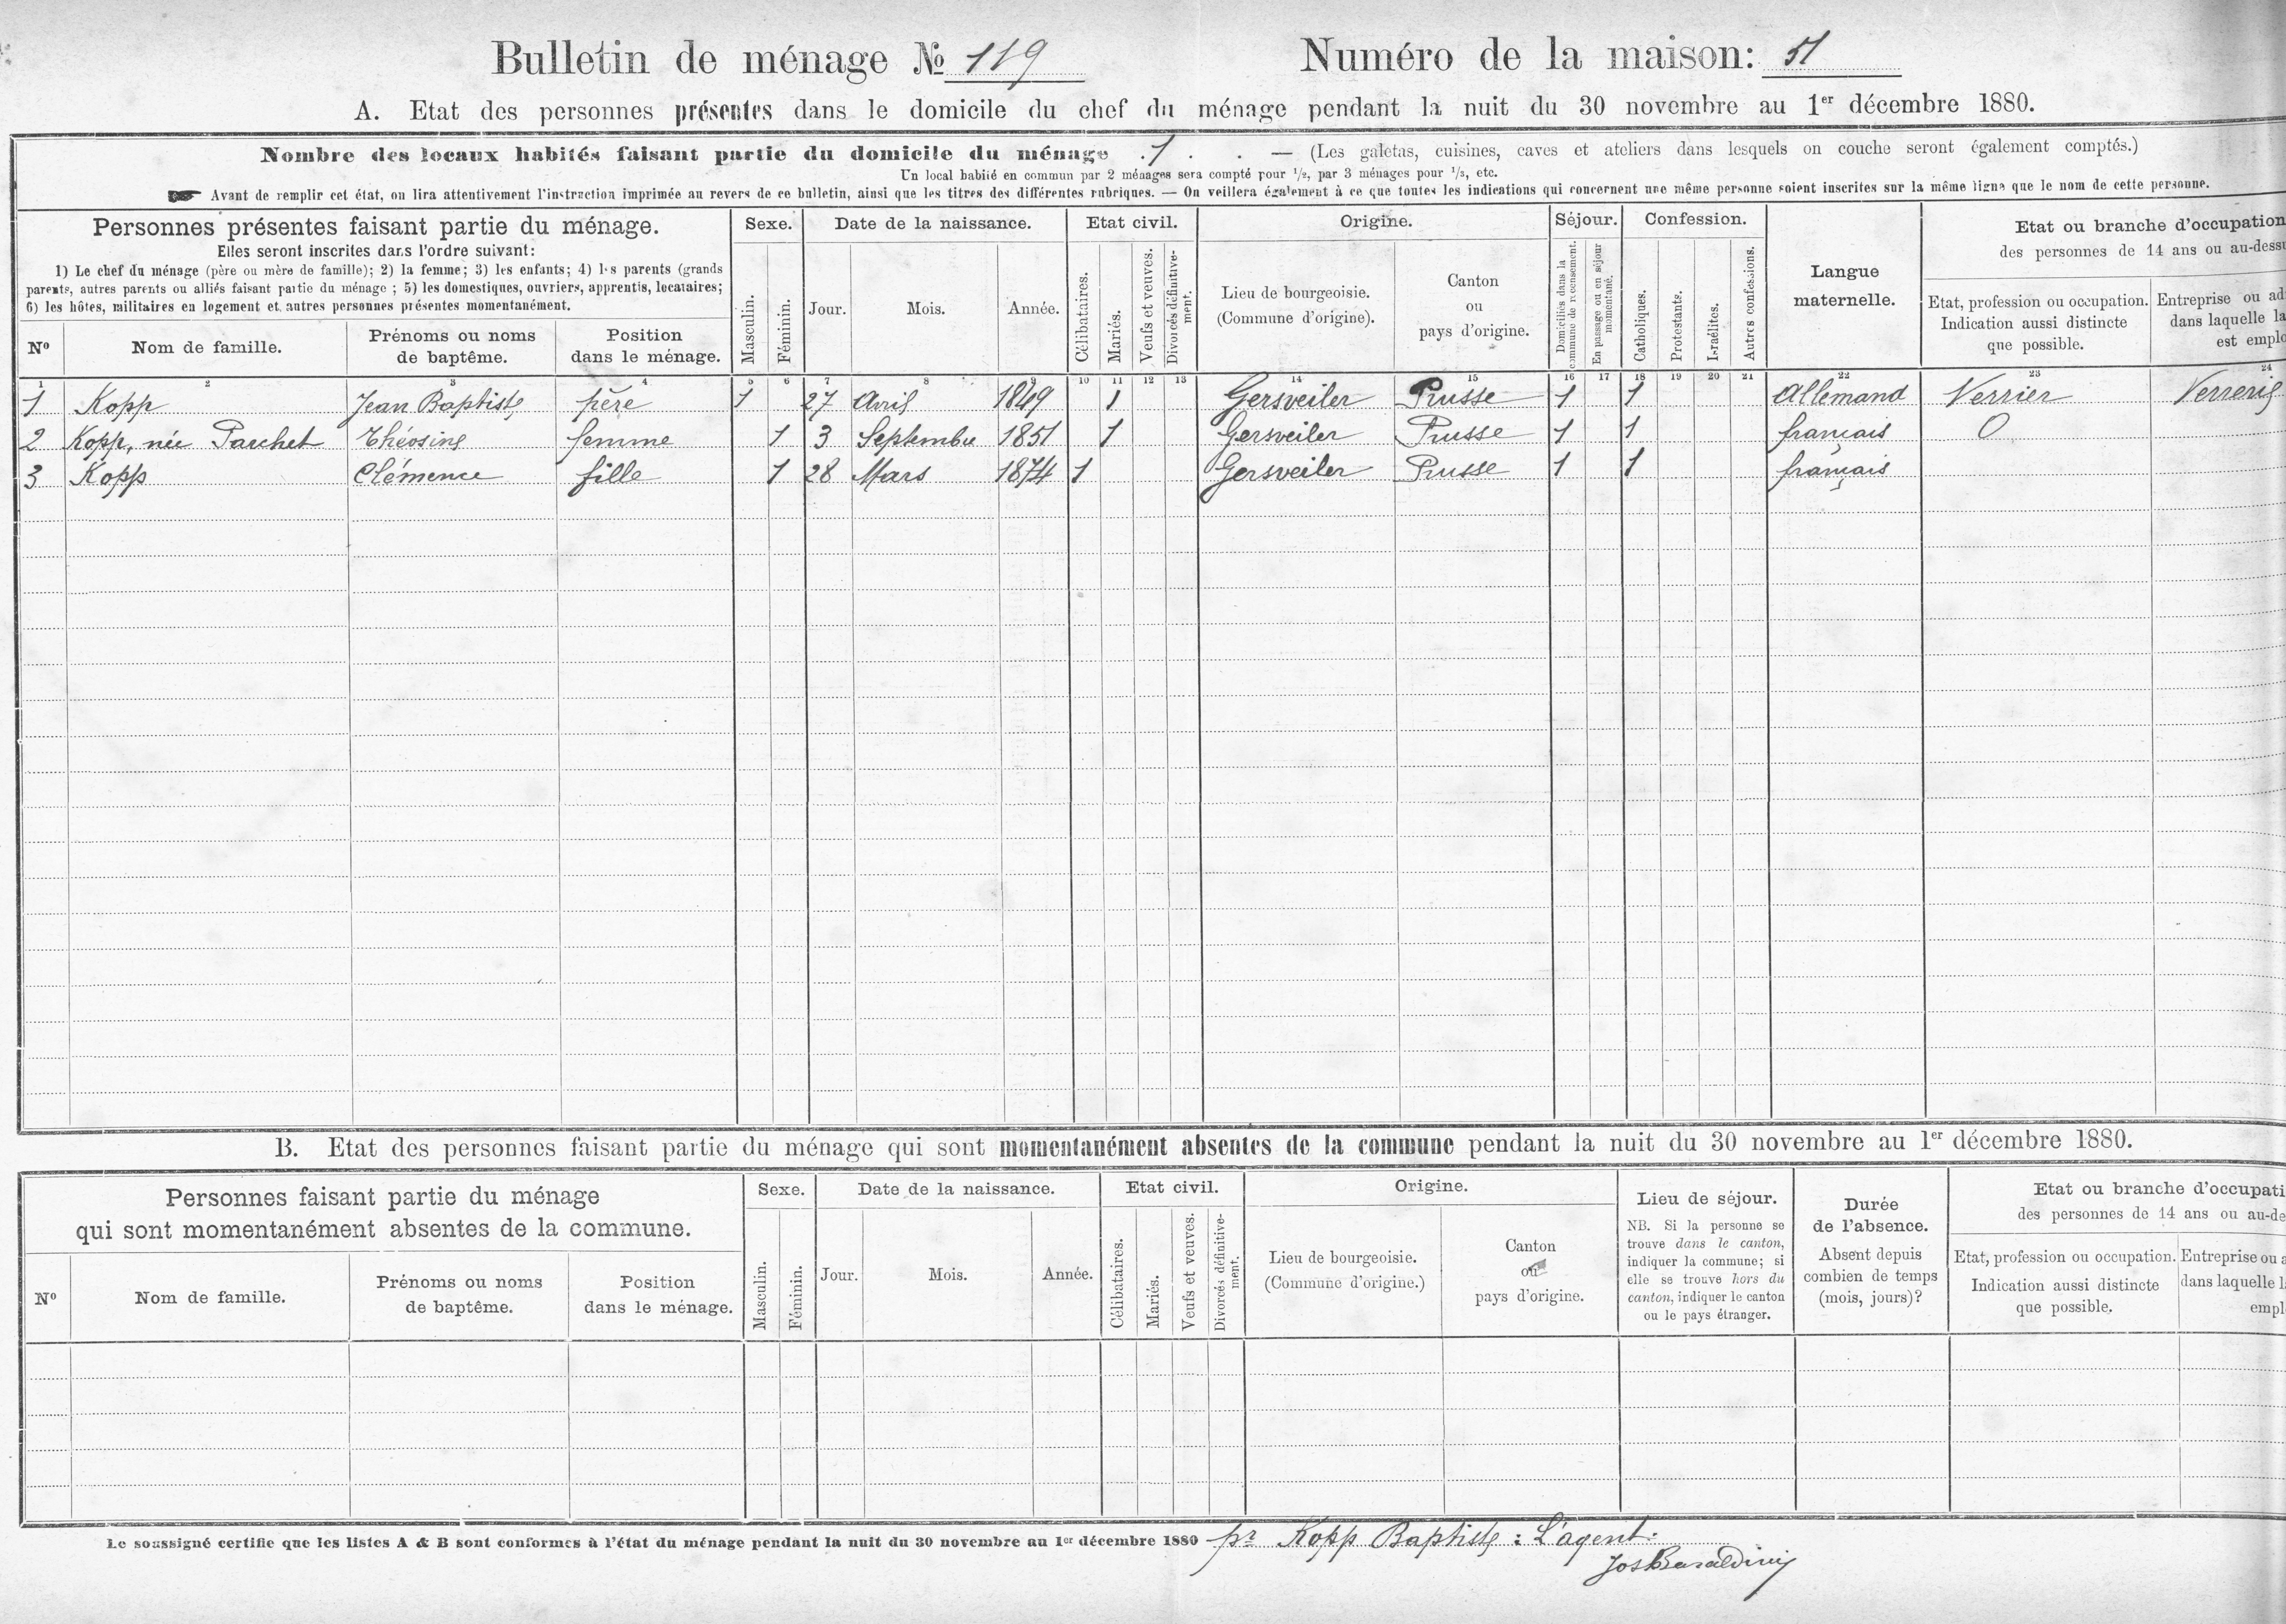 Bulletin de ménage No 119 Numéro de la maison: 51
A. Etat des personnes présentes dans le domicile du chef du ménage pendant la nuit du 30 novembre au 1er décembre 1880.
Nombre des locaux habités faisant partie du domicile du ménage . 1 . . — (Les galetas, cuisines, caves et ateliers dans lesquels on couche seront également comptés.)
Un local habité en commun par 2 ménages sera compté pour 1/2, par 3 ménages pour 1/3, etc.
Avant de remplir cet état, on lira attentivement l'instruction imprimée au revers de ce bulletin, ainsi que les titres des différentes rubriques. — On veillera également à ce que toutes les indications qui concernent une même personne soient inscrites sur la même ligne que le nom de cette personne.
Personnes présentes faisant partie du ménage.
Elles seront inscrites dans l'ordre suivant:
1) Le chef du ménage (père ou mère de famille); 2) la femme; 3) les enfants; 4) les parents (grands
parents, autres parents ou alliés faisant partie du ménage ; 5) les domestiques, ouvriers, apprentis, locataires;
6) les hôtes, militaires en logement et autres personnes présentes momentanément.
No
Nom de famille.
Prénoms ou noms
de baptême.
Position
dans le ménage.
Sexe.
Masculin.
Féminin.
Date de la naissance.
Jour.
Mois.
Année.
Etat civil.
Célibataires.
Mariés.
Veufs et veuves.
Divorcés définitive-
ment.
Origine.
Lieu de bourgeoisie.
(Commune d'origine).
Canton
ou
pays d'origine.
Séjour.
Domiciliés dans la
commune de recensement.
En passage ou en séjour
momentané.
Confession.
Catholiques.
Protestants.
Israélites.
Autres confessions.
Langue
maternelle.
Etat ou branche d'occupation
des personnes de 14 ans ou au-dessu
Etat, profession ou occupation.
Indication aussi distincte
que possible.
Entreprise ou ad
dans laquelle la
est emplo
1 2 3 4 5 6 7 8 9 10 11 12 13 14 15 16 17 18 19 20 21 22 23 24
1 Kopp Jean Baptiste père 1 27 Avril 1849 1 Gersveiler Prusse 1 1 Allemand Verrier Verrerie
2 Kopp, née Parchet Théosine femme 1 3 Septembre 1851 1 Gersveiler Prusse 1 1 français 0
3 Kopp Clémence fille 1 28 Mars 1874 1 Gersveiler Prusse 1 1 français
B. Etat des personnes faisant partie du ménage qui sont momentanément absentes de la commune pendant la nuit du 30 novembre au 1er décembre 1880.
Personnes faisant partie du ménage
qui sont momentanément absentes de la commune.
No
Nom de famille.
Prénoms ou noms
de baptême.
Position
dans le ménage.
Sexe.
Masculin.
Féminin.
Date de la naissance.
Jour.
Mois.
Année.
Etat civil.
Célibataires.
Mariés.
Veufs et veuves.
Divorcés définitive-
ment.
Origine.
Lieu de bourgeoisie.
(Commune d'origine.)
Canton
ou
pays d'origine.
Lieu de séjour.
NB. Si la personne se
trouve dans le canton,
indiquer la commune; si
elle se trouve hors du
canton, indiquer le canton
ou le pays étranger.
Durée
de l'absence.
Absent depuis
combien de temps
(mois, jours)?
Etat ou branche d'occupati
des personnes de 14 ans ou au-de
Etat, profession ou occupation.
Indication aussi distincte
que possible.
Entreprise ou a
dans laquelle l
empl
Le soussigné certifie que les listes A & B sont conformes à l'état du ménage pendant la nuit du 30 novembre au 1er décembre 1880 pr Kopp Baptiste : L'agent: